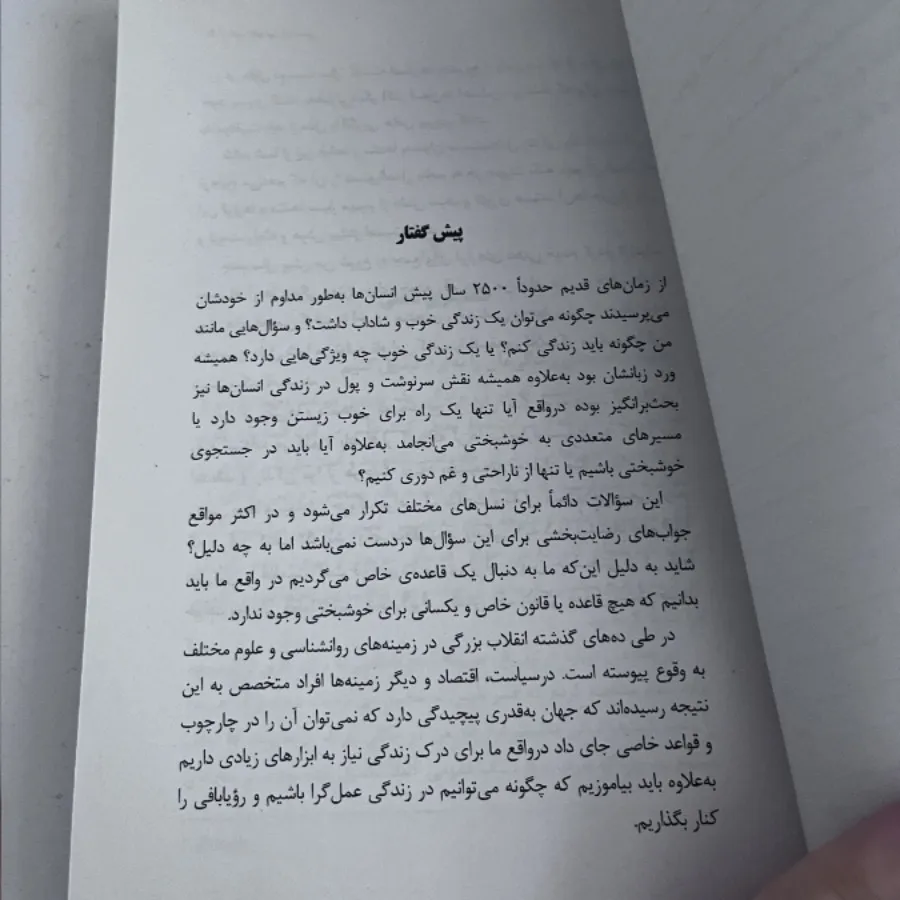 پیش گفتار
از زمان‌های قدیم حدوداً ۲۵۰۰ سال پیش انسان‌ها به‌طور مداوم از خودشان
می‌پرسیدند چگونه می‌توان یک زندگی خوب و شاداب داشت؟ و سؤال‌هایی مانند
من چگونه باید زندگی کنم؟ یا یک زندگی خوب چه ویژگی‌هایی دارد؟ همیشه
ورد زبانشان بود به‌علاوه همیشه نقش سرنوشت و پول در زندگی انسان‌ها نیز
بحث‌برانگیز بوده درواقع آیا تنها یک راه برای خوب زیستن وجود دارد یا
مسیرهای متعددی به خوشبختی می‌انجامد به‌علاوه آیا باید در جستجوی
خوشبختی باشیم یا تنها از ناراحتی و غم دوری کنیم؟
این سؤالات دائماً برای نسل‌های مختلف تکرار می‌شود و در اکثر مواقع
جواب‌های رضایت‌بخشی برای این سؤال‌ها دردست نمی‌باشد اما به چه دلیل؟
شاید به دلیل این‌که ما به دنبال یک قاعده‌ی خاص می‌گردیم در واقع ما باید
بدانیم که هیچ قاعده یا قانون خاص و یکسانی برای خوشبختی وجود ندارد.
در طی ده‌های گذشته انقلاب بزرگی در زمینه‌های روانشناسی و علوم مختلف
به وقوع پیوسته است. درسیاست، اقتصاد و دیگر زمینه‌ها افراد متخصص به این
نتیجه رسیده‌اند که جهان به‌قدری پیچیدگی دارد که نمی‌توان آن را در چارچوب
و قواعد خاصی جای داد درواقع ما برای درک زندگی نیاز به ابزارهای زیادی داریم
به‌علاوه باید بیاموزیم که چگونه می‌توانیم در زندگی عمل‌گرا باشیم و رؤیابافی را
کنار بگذاریم.